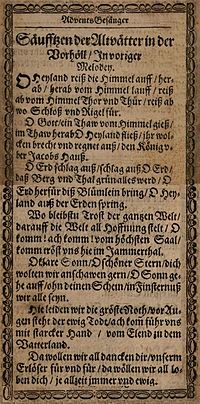 Advents Gesänger
Säufftzen der Altvätter in der
Vorhöll / In voriger
Melodey.
O Heyland reiß die Himmel auff / her-
ab / herab vom Himmel lauff / reiß
ab vom Himmel Thor vnd Thür / reiß ab
wo Schloß vnd Rigel für.
O Gott / ein Thaw vom Himmel gieß /
im Thaw herab O Heyland fließ / ihr wol-
cken brecht vnd regnet auß / den König v-
ber Jacobs Hauß.
O Erd schlag auß / schlag auß O Erd /
daß Berg vnd Thal grün alles werd / O
Erd herfür diß Blümlein bring / O Hey-
land auß der Erden spring.
Wo bleibstu Trost der gantzen Welt /
darauff die Welt all Hoffnung stelt / O
komm! ach komm! vom höchsten Saal /
komm tröst vns hie im Jammerthal.
O klare Sonn / O schöner Stern / dich
wolten wir anschawen gern / O Sonn ge-
he auff / ohn deinen Schein / in Finsternuß
wir alle seyn.
Hie leiden wir die gröste Noth / vor Au-
gen steht der ewig Todt / ach kom führ vns
mit starcker Hand / vom Elend in dem
Vatterland.
Da wollen wir all dancken dir / vnserm
Erlöser für vnd für / da wöllen wir all lo-
ben dich / je allzeit jmmer vnd ewig.